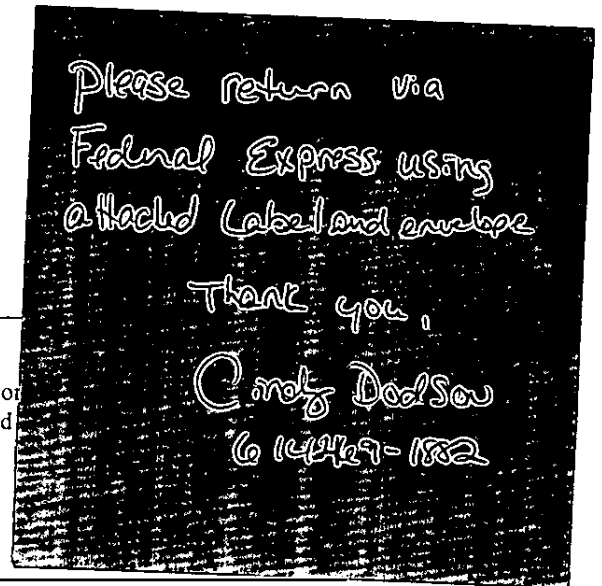 Please return via
Federal Express using
attached label and envelope
Thank you,
Cindy Dodson
614/469-1882
or
d